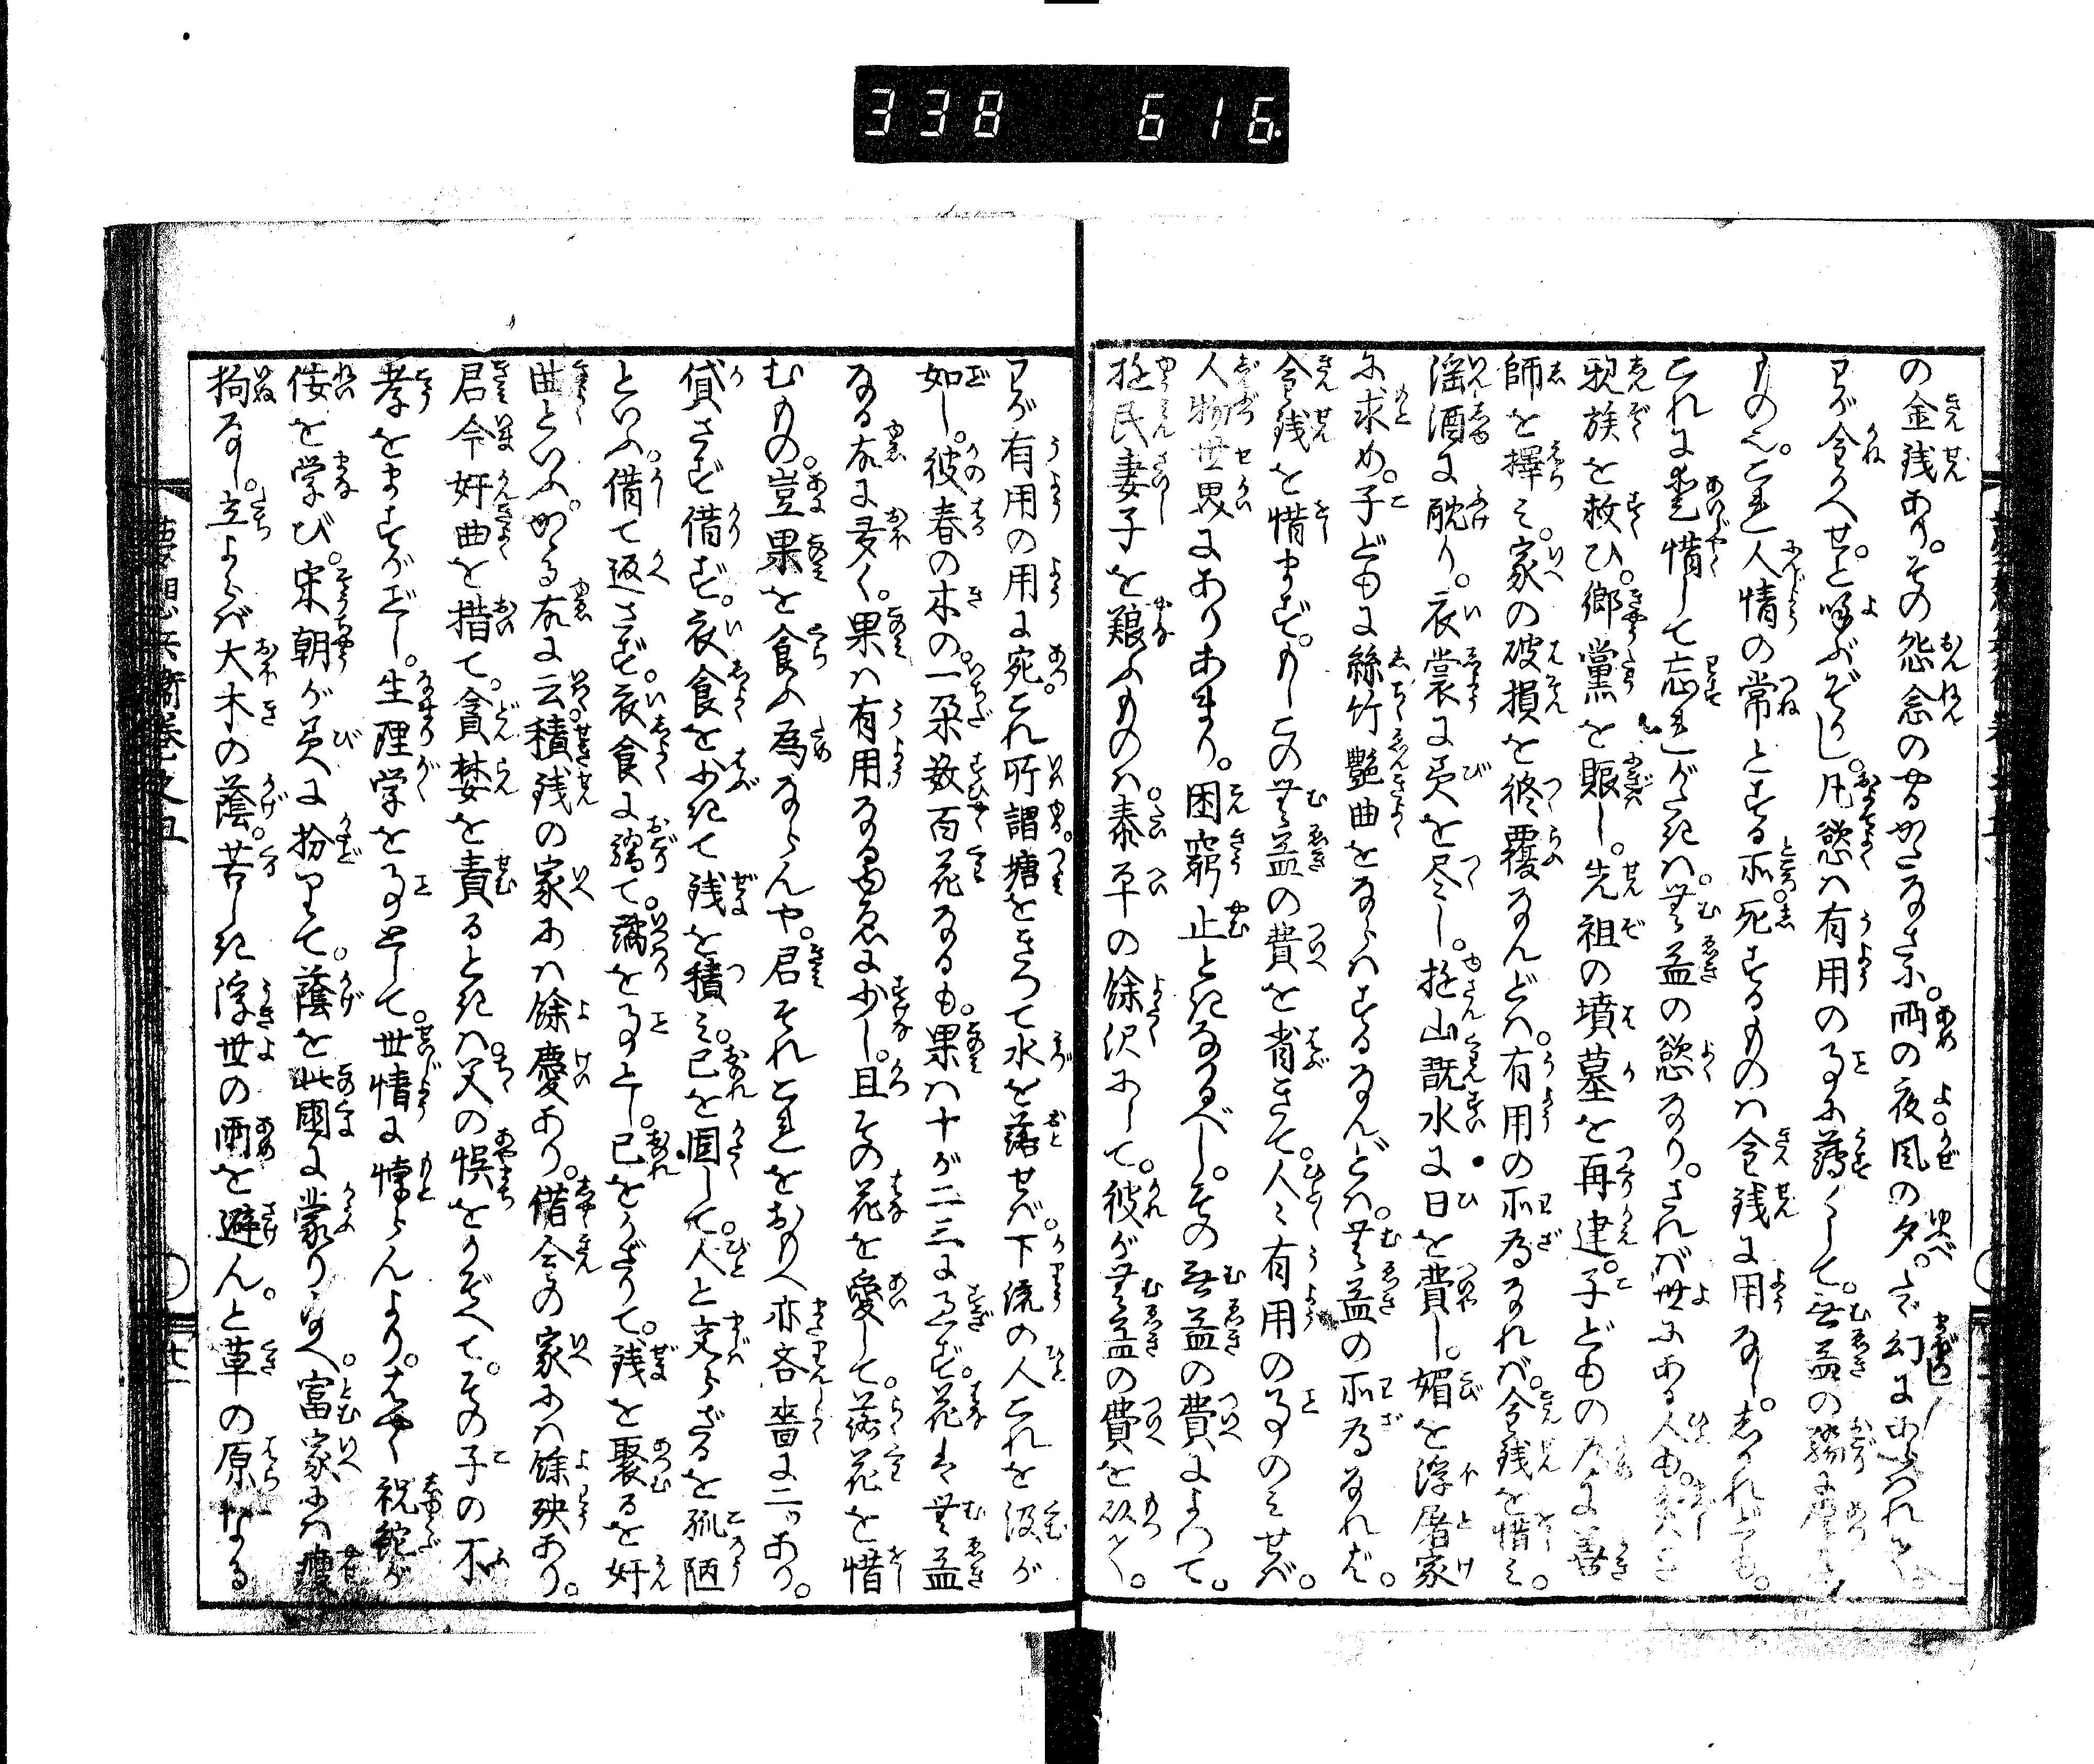 338 616.
の金銭あり。その怨念のやるかたなさに。雨の夜風の夕。まぼろしにあらはれ出。
わが金かへせと呼ぶぞかし。凡慾は有用の事に薄くして。無益の驕に厚き
ものへ。これ人情の常とする所死するものは金銭に用なし。しかれども。
これに愛惜して忘れがたきは。無益の慾なり。されば世にある人も。
親族を救ひ。郷黨を賑し。先祖の墳墓を再建。子どもの為に善
師を擇み。家の破損を修覆なんどは。有用の所為なれば。金銭を惜み。
淫酒に耽り。衣裳に美を尽し。遊山翫水に日を費し。媚を浮屠家
に求め。子どもに絲竹艶曲をならはするなんどは。無益の所為なれど。
金銭を惜まず。もしこの無益の費を省きて。人々有用の事のみせば。
人物世界にありあまり。困窮止ときなかるべし。その無益の費によつて。
遊民妻子を養ふものは。泰平の餘沢にして。彼が無益の費を以て。
わが有用の用に宛。これ所謂塘をきつて水を落せば。下流の人これを汲が
如し。彼春の木の。一朶数百花なるも。果は十が二三に過ず。花は無益
なる故に多く。果は有用なるゆゑに少し。且その花を愛して。落花を惜
むもの。豈果を食ふ為ならんや。君それこれをおもへ亦吝嗇に二ッあり。
貸さず借ず。衣食を少きて銭を積み。己を固して。人と交らざるを孤陋
といふ。借て返さず。衣食に驕て。譎を事とし。己をかざりて。銭を聚るを奸
曲といふ。かゝる故に云積銭の家には餘慶あり。借金の家には餘殃あり。
君今奸曲を措て。貪婪を責るときは。父の悞をかぞへて。その子の不
孝をますがごとし。生理学を事として。世情に悖らんより。はやく祝鮀が
佞を学び。宋朝が美に扮りて。蔭を此國に蒙り給へ富家には痩
狗なし。立よらば大木の蔭。苦しき浮世の雨を避ん。と草の原なる
夢想兵衛巻之五